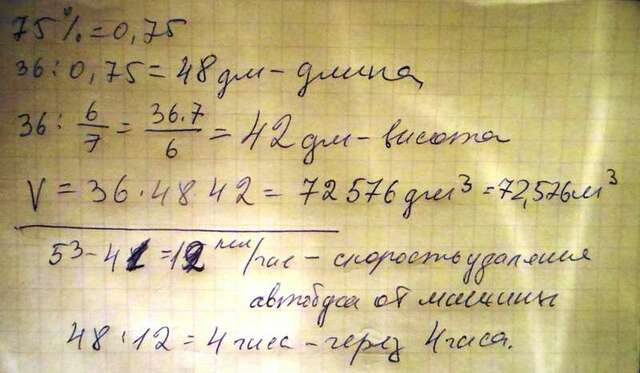 75% = 0,75
36 : 0,75 = 48 дм - длина
36 : 6/7 = 36·7/6 = 42 дм - высота
V = 36·48·42 = 72576 дм³ = 72,576 м³
53 - 41 = 12 км/час - скорость удаления
автобуса от машины
48 : 12 = 4 часа - через 4 часа.